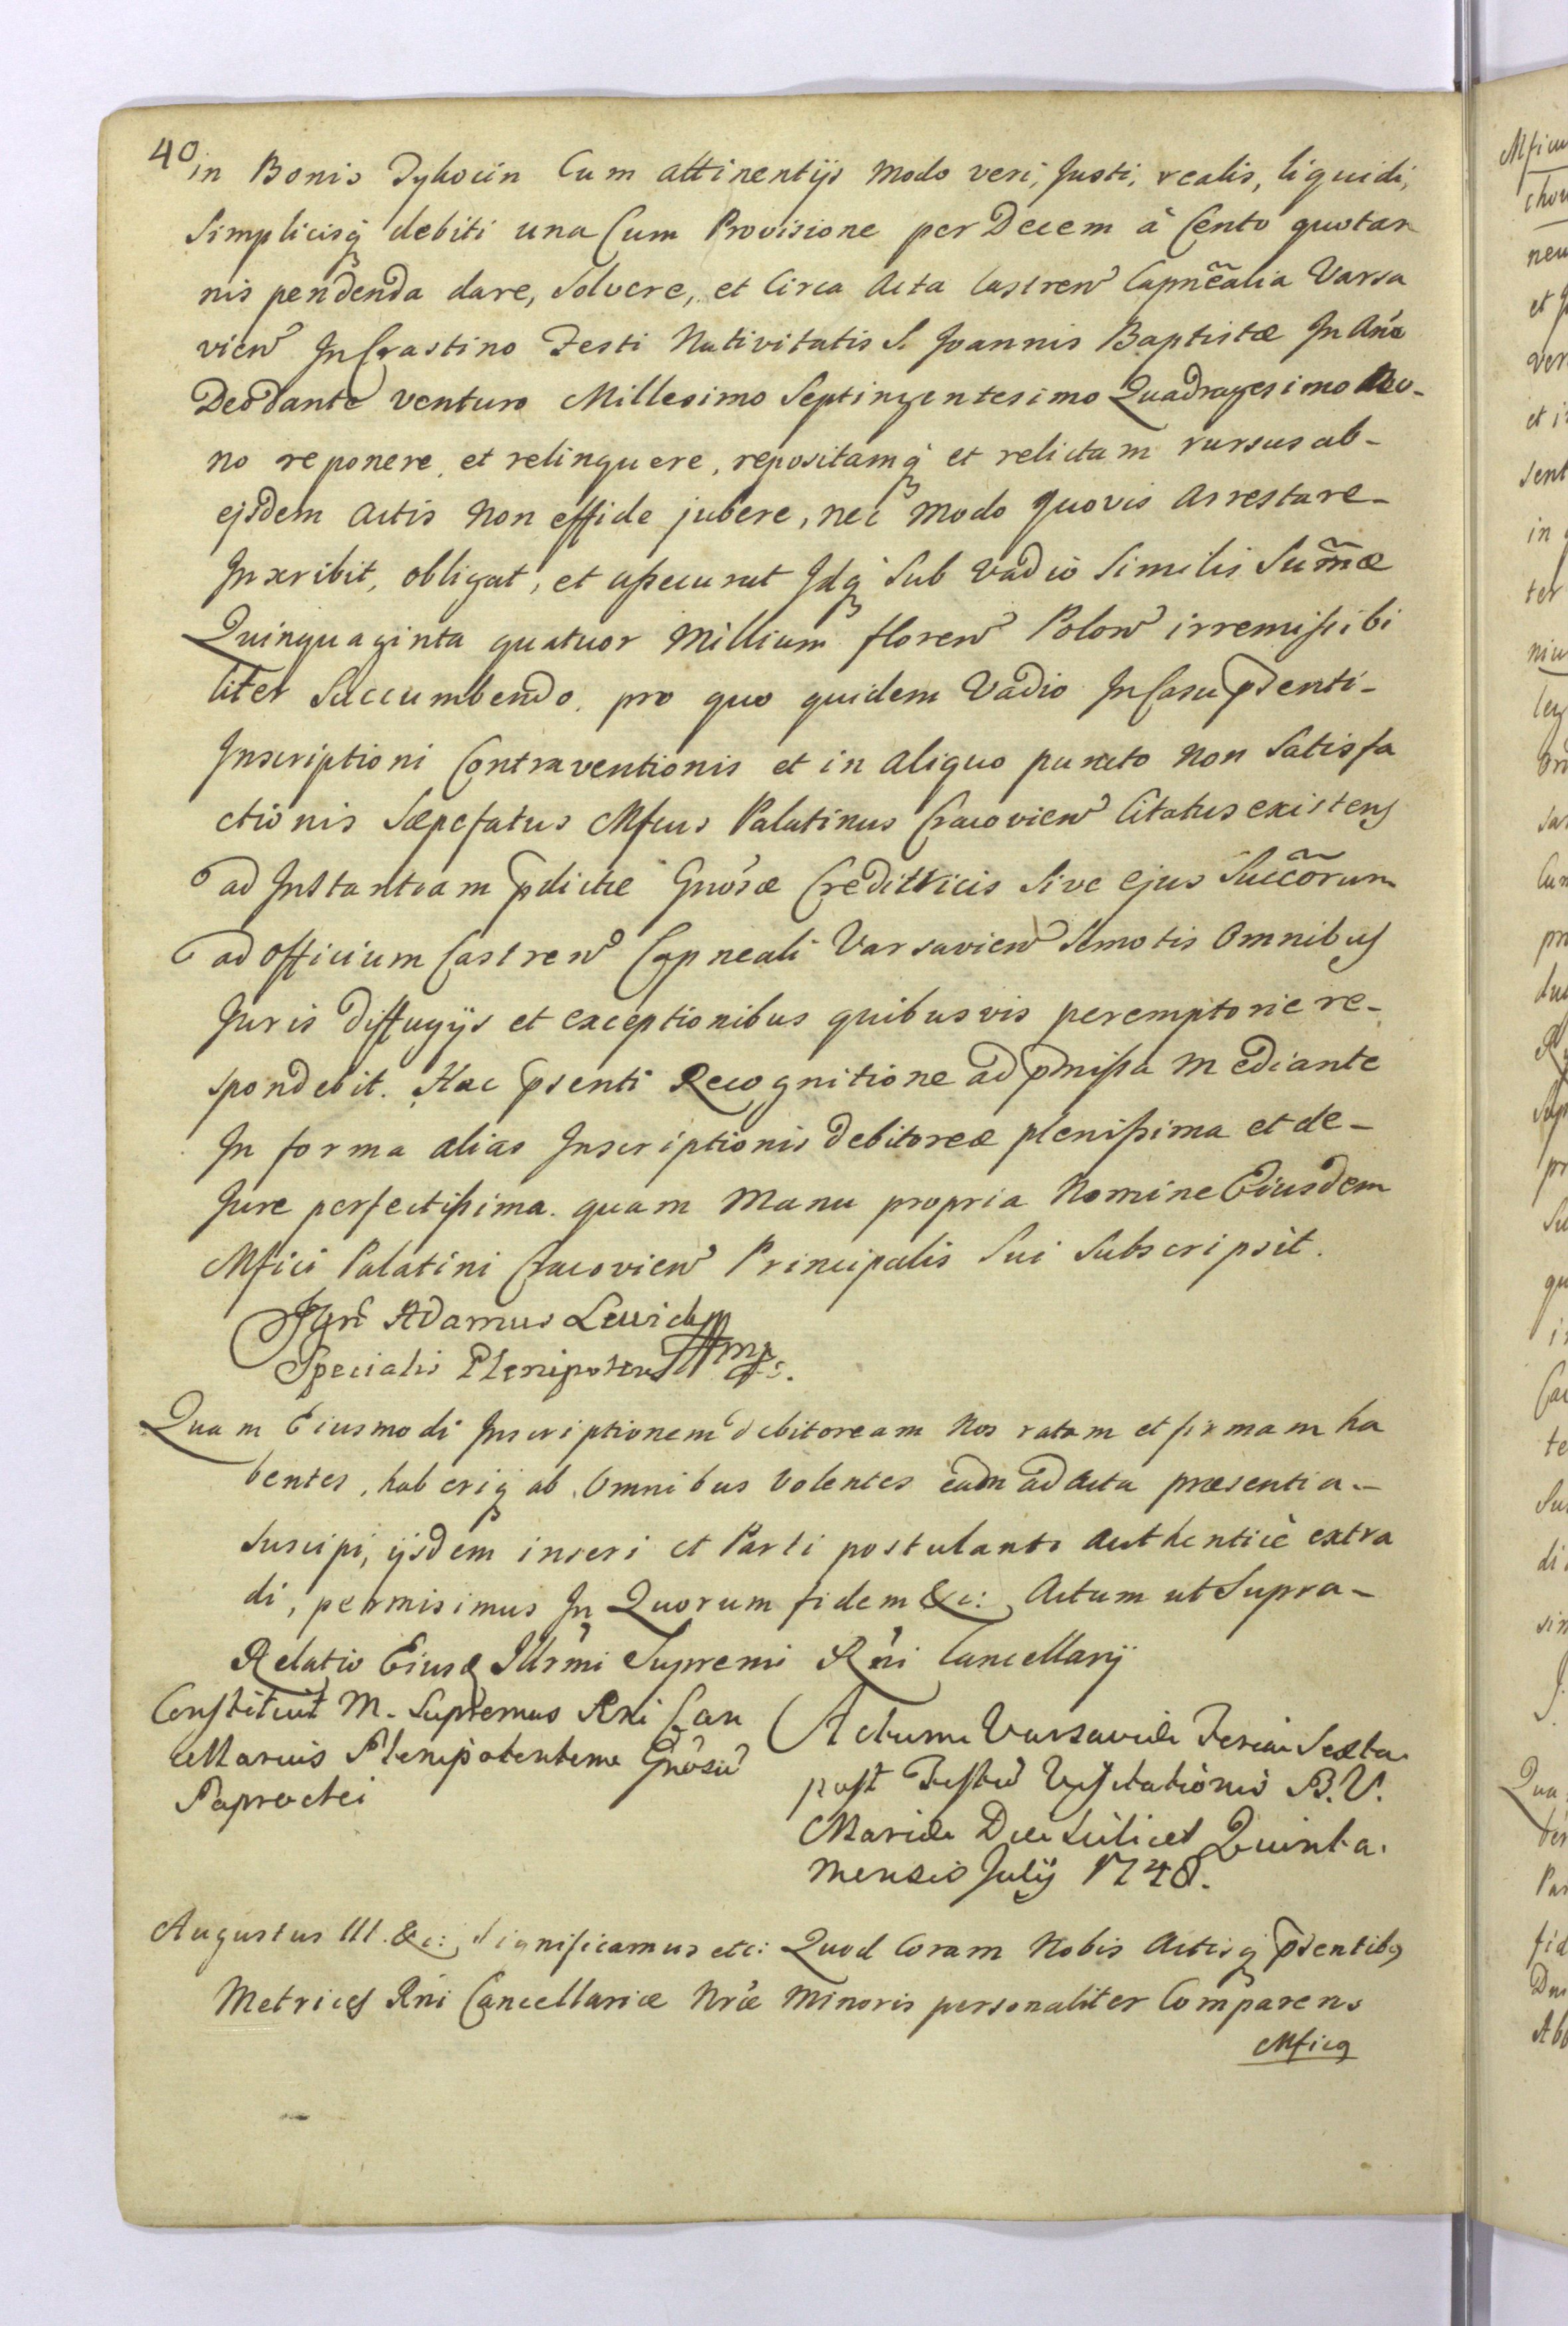 40
in Bonis Tykocin Cum attinentijs modo veri, Justi, realis, liquidi,
Simplicisq debiti una Cum Provisione per Decem à Cento quotan
nis pendenda dare, Solvere, et Circa Acta Castren Capnẽalia Varsa
vien In Crastino Festi Nativitatis S. Joannis Baptistæ In Año
Deodante venturo Millesimo Septingentesimo Quadragesimo No-
no reponere et relinquere, repositamq et relictam rursus ab-
ejsdem actis Non effide jubere, nec modo quovis Arrestare-
Inscribit, obligat, et assecurat Idq Sub Vadio Similis Sum̃æ
Quinquaginta quatuor Millium floren Polon irremissibi
liter Succumbendo, pro quo quidem Vadio In Casu psenti-
Inscriptioni Contraventionis et in aliquo puncto Non Satisfa
ctionis Sæpefatus Mfcus Palatinus Cracovien Citatus existens
ad Instantiam pdictæ Gnosæ Creditricis Sive ejus Succõrum
ad Officium Castren Capneali Varsavien Semotis Omnibus
Juris Diffugijs et exceptionibus quibusvis peremptorie re-
spondebit. Hac psenti Recognitione ad pmissa mediante
In forma alias Inscriptionis debitoreæ plenissima et de-
Jure perfectissima. quam Manu propria Nomine Eiusdem
Mfici Palatini Cracovien Principalis Sui Subscripsit.
Adamus
Specialis Plenipotens mp.
Quam Eiusmodi Inscriptionem debitoream Nos ratam et firmam ha
bentes, haberiq ab Omnibus Volentes eadm ad acta præsentia.-
Suscipi, ijsdem inseri et Parti postulanti authenticè extra
di, permisimus In Quorum fidem &c: Actum ut Supra-
Relatio Eiusq Illrmi Supremi Rni Cancellarij
Constituit M. Supremus Rni Can
cellarius Plenipotentem Gnosu
Paprocki
Actum Varsaviæ Feria Sexta
post Festu Visitationis B. V.
Mariæ Die Scilicet Quinta.
Mensis Julij 1748.
Augustus III. &c: Significamus etc: Quod Coram Nobis Actisq psentibq
Metrices Rni Cancellariæ Nræ Minoris personaliter Comparens
Mficq